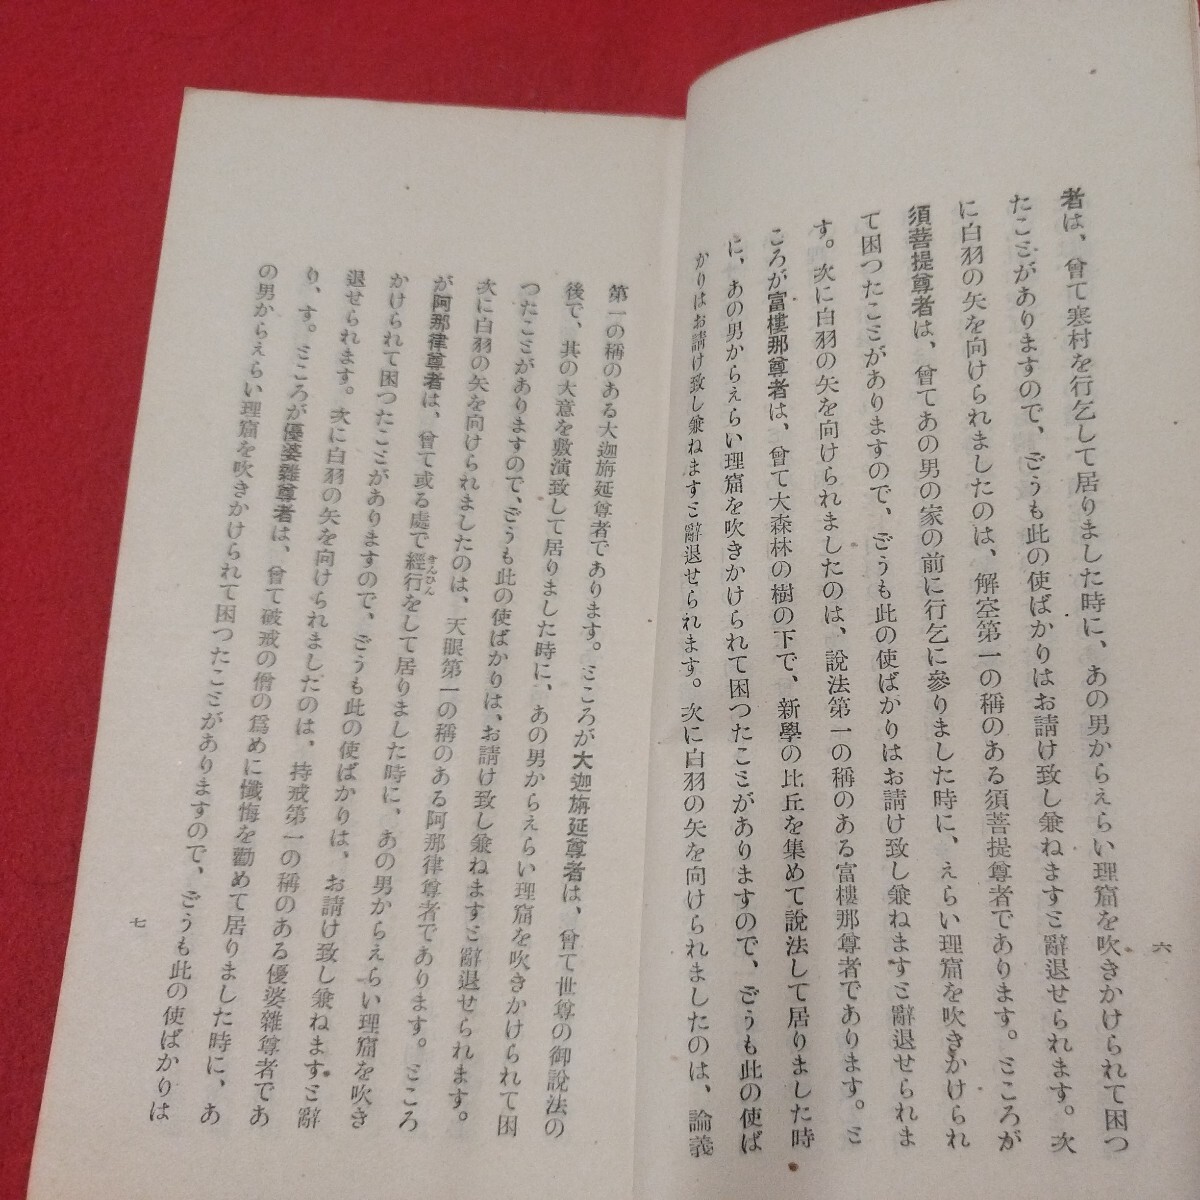 者は、曾て寒村を行乞して居りました時に、あの男からえらい理窟を吹きかけられて困つ
たことがありますので、どうも此の使ばかりはお請け致し兼ねますと辭退せられます。次
に白羽の矢を向けられましたのは、解空第一の稱のある須菩提尊者であります。ところが
須菩提尊者は、曾てあの男の家の前に行乞に參りました時に、えらい理窟を吹きかけられ
て困つたことがありますので、どうも此の使ばかりはお請け致し兼ねますと辭退せられま
す。次に白羽の矢を向けられましたのは、說法第一の稱のある富樓那尊者であります。と
ころが富樓那尊者は、曾て大森林の樹の下で、新學の比丘を集めて說法して居りました時
に、あの男からえらい理窟を吹きかけられて困つたことがありますので、どうも此の使ば
かりはお請け致し兼ねますと辭退せられます。次に白羽の矢を向けられましたのは、論義
六
第一の稱のある大迦旃延尊者であります。ところが大迦旃延尊者は、曾て世尊の御說法の
後で、其の大意を敷演致して居りました時に、あの男からえらい理窟を吹きかけられて困
つたことがありますので、どうも此の使ばかりは、お請け致し兼ねますと辭退せられます。
次に白羽の矢を向けられましたのは、天眼第一の稱のある阿那律尊者であります。ところ
が阿那律尊者は、曾て或る處で經行をして居りました時に、あの男からえらい理窟を吹き
きんひん
かけられて困つたことがありますので、どうも此の使ばかりは、お請け致し兼ねますと辭
退せられます。次に白羽の矢を向けられましたのは、持戒第一の稱のある優婆離尊者であ
り、す。ところが優婆離尊者は、曾て破戒の僧の爲めに懺悔を勸めて居りました時に、あ
の男からえらい理窟を吹きかけられて困つたことがありますので、どうも此の使ばかりは
七